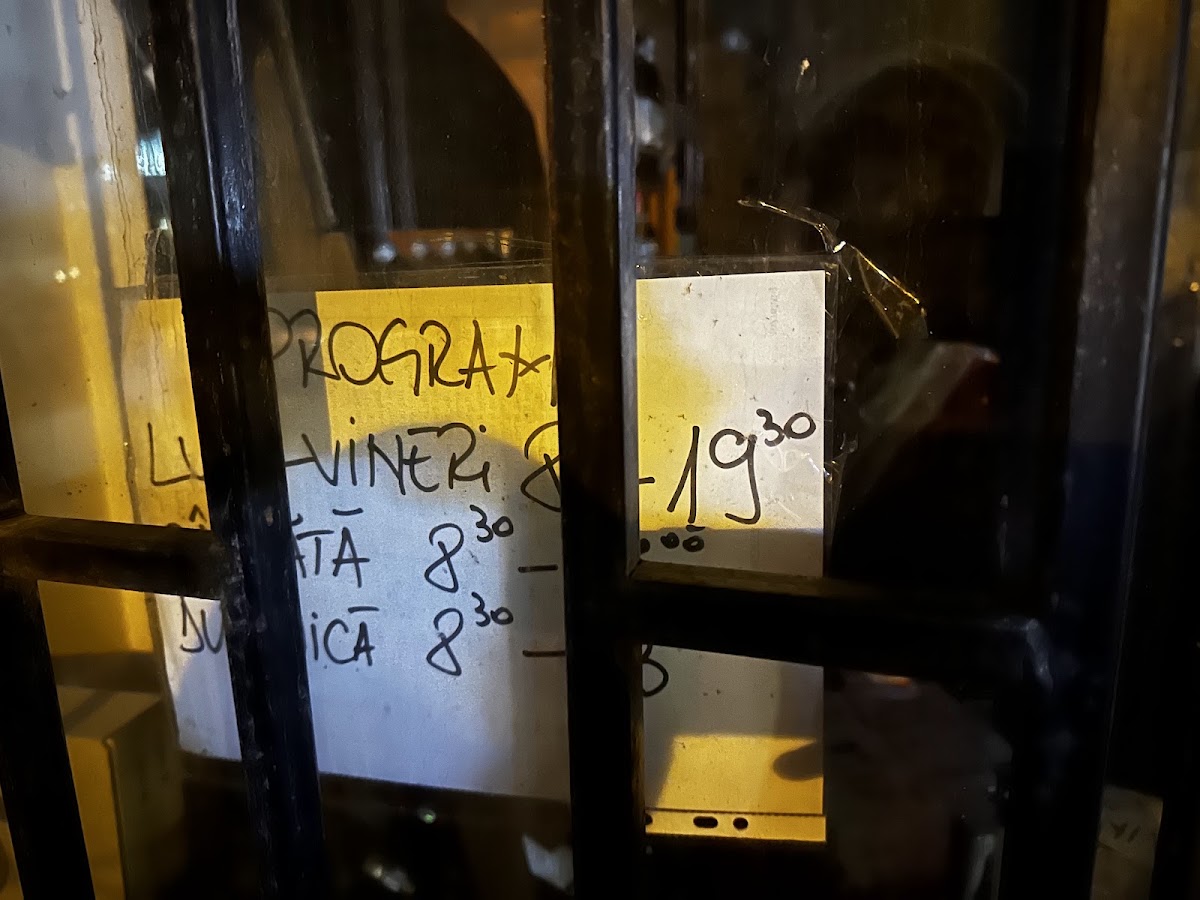 PROGRAM
LU -VINERI 8 -19³⁰
ĂTĂ 8³⁰ - ⁰⁰
DU ICĂ 8³⁰ -